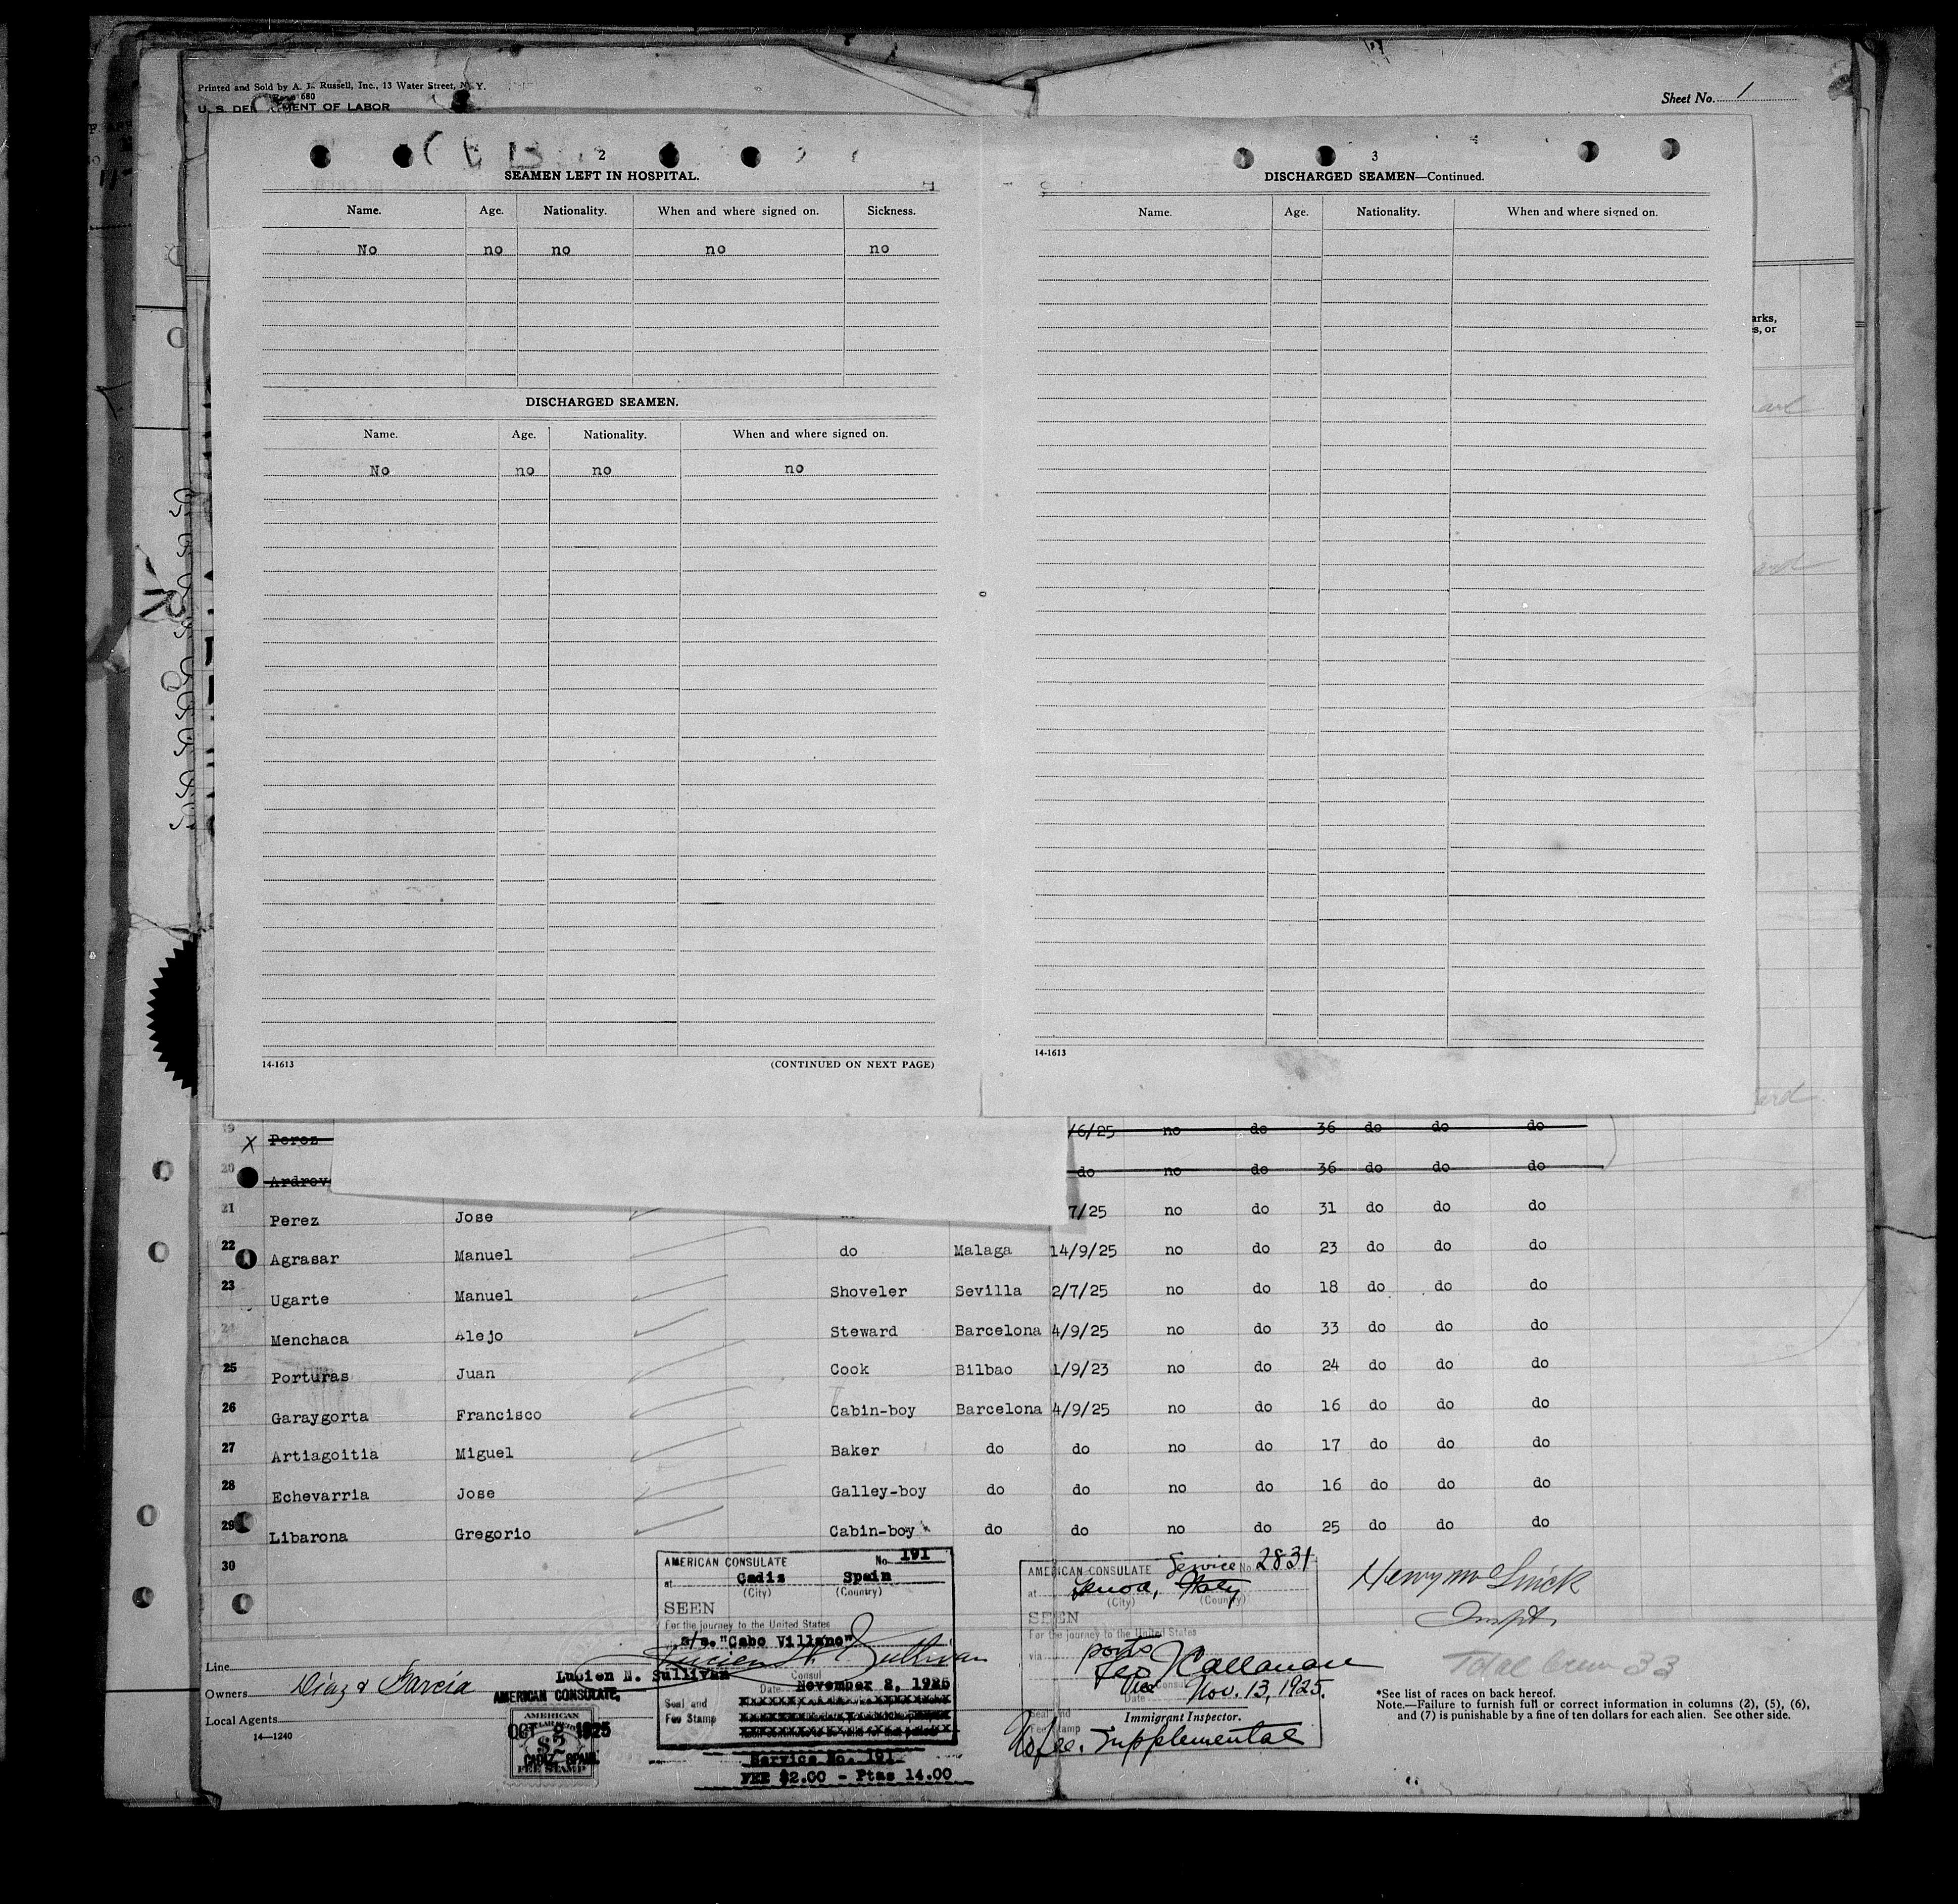 Printed and Sold by A. L. Russell, Inc., 13 Water Street, N. Y.
680
U. S. DEPARTMENT OF LABOR
Sheet No. 1
2
SEAMEN LEFT IN HOSPITAL.
Name. Age. Nationality. When and where signed on. Sickness.
No no no no no
DISCHARGED SEAMEN.
Name. Age. Nationality. When and where signed on.
No no no no
14-1613 (CONTINUED ON NEXT PAGE)
3
DISCHARGED SEAMEN—Continued.
Name. Age. Nationality. When and where signed on.
14-1613
arks,
s, or
19 X Perez /6/25 no do 36 do do do
20 Ardrev do no do 36 do do do
21 Perez Jose 7/25 no do 31 do do do
22 Agrasar Manuel do Malaga 14/9/25 no do 23 do do do
23 Ugarte Manuel Shoveler Sevilla 2/7/25 no do 18 do do do
24 Menchaca Alejo Steward Barcelona 4/9/25 no do 33 do do do
25 Porturas Juan Cook Bilbao 1/9/23 no do 24 do do do
26 Garaygorta Francisco Cabin-boy Barcelona 4/9/25 no do 16 do do do
27 Artiagoitia Miguel Baker do do no do 17 do do do
28 Echevarria Jose Galley-boy do do no do 16 do do do
29 Libarona Gregorio Cabin-boy do do no do 25 do do do
30
Line
Owners Diaz & Garcia
Local Agents
14—1240
AMERICAN CONSULATE No 191
at Cadis Spain
(City) (Country)
SEEN
For the journey to the United States
s/s. "Cabo Villano"
Lucien N. Sullivan
Lucien N. Sullivan
Consul
Date November 2, 1925
Seal and
Fee Stamp
Service No. 191
FEE $2.00 - Ptas 14.00
AMERICAN CONSULATE,
AMERICAN
OCT 2 1925
$2
CADIZ, SPAIN.
FEE STAMP
AMERICAN CONSULATE Service No 2831
at Genoa, Italy
(City) (Country)
SEEN
For the journey to the United States
via ports
Callanan
Vice Consul
Date Nov. 13, 1925.
Seal and
Fee Stamp
Immigrant Inspector.
No fee. Supplemental
Inspt.
Total Crew 33
*See list of races on back hereof.
Note.—Failure to furnish full or correct information in columns (2), (5), (6),
and (7) is punishable by a fine of ten dollars for each alien. See other side.